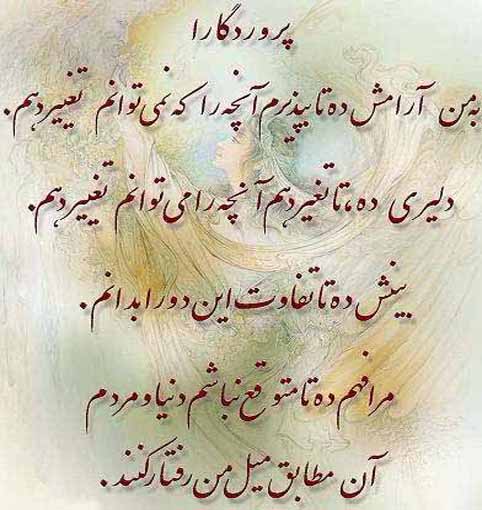 پروردگارا
به من آرامش ده تا بپذیرم آنچه را که نمی توانم تغییر دهم.
دلیری ده، تا تغییر دهم آنچه را می توانم تغییر دهم.
بینش ده تا تفاوت این دو را بدانم.
مرا فهم ده تا متوقع نباشم دنیا و مردم
آن مطابق میل من رفتار کنند.